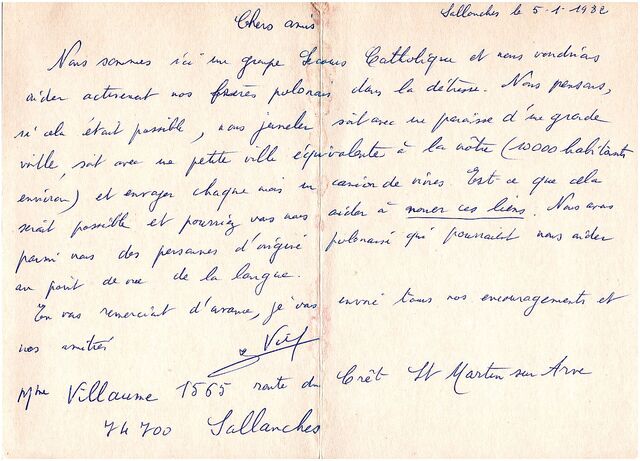 Sallanches le 5-1-1982
Chers amis
Nous sommes ici un groupe Secours Catholique et nous voudrions
aider activement nos frères polonais dans la détresse. Nous pensons,
si cela était possible, nous jumeler soit avec une paroisse d'une grande
ville, soit avec une petite ville équivalente à la nôtre (10000 habitants
environ) et envoyer chaque mois un camion de vivres Est-ce que cela
serait possible et pourriez vous nous aider à nouer ces liens. Nous avons
parmi nous des personnes d'origine polonaise qui pourraient nous aider
au point de vue de la langue.
En vous remerciant d'avance, je vous envoie tous nos encouragements et
nos amitiés Vill
Mme Villaume 1565 route du Crêt St Martin sur Arve
74700 Sallanches